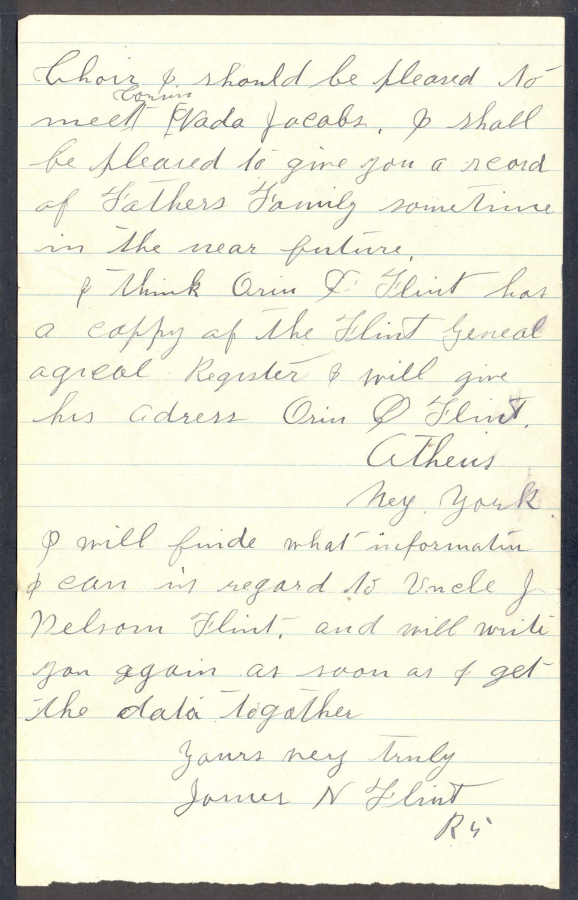 Choir I should be pleased to
Cousin
meet Vada Jacobs. I shall
be pleased to give you a recod
of Fathers Family sometime
in the near future.
I think Orin Q Flint has
a coppy of the Flint Geneal
agical Register I will give
his adress Orin Q Flint.
Athens
Ney York.
I will finde what informatin
I can in regard to Uncle J
Nelsom Flint, and will write
you again as soon as I get
the data together
Yours very truly
James N Flint
R 5